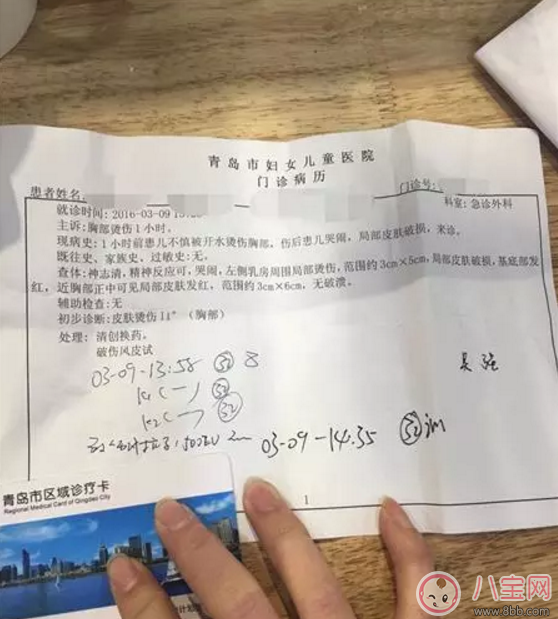 青岛市妇女儿童医院
门诊病历
患者姓名: 门诊号:
就诊时间: 2016-03-09 科室: 急诊外科
主诉: 胸部烫伤1小时。
现病史: 1小时前患儿不慎被开水烫伤胸部，伤后患儿哭闹，局部皮肤破损，来诊。
既往史、家族史、过敏史: 无。
查体: 神志清，精神反应可，哭闹，左侧乳房周围局部烫伤，范围约3cm×5cm，局部皮肤破损，基底部发
红，近胸部正中可见局部皮肤发红，范围约3cm×6cm，无破溃。
辅助检查: 无
初步诊断: 皮肤烫伤 11° (胸部)
处理: 清创换药。
破伤风皮试
03-09-13:58 52
吴强
(一) 52
(一) 52
03-09-14:35 52
1
青岛市区域诊疗卡
Regional Medical Card of Qingdao City
八宝网
www.8bb.com